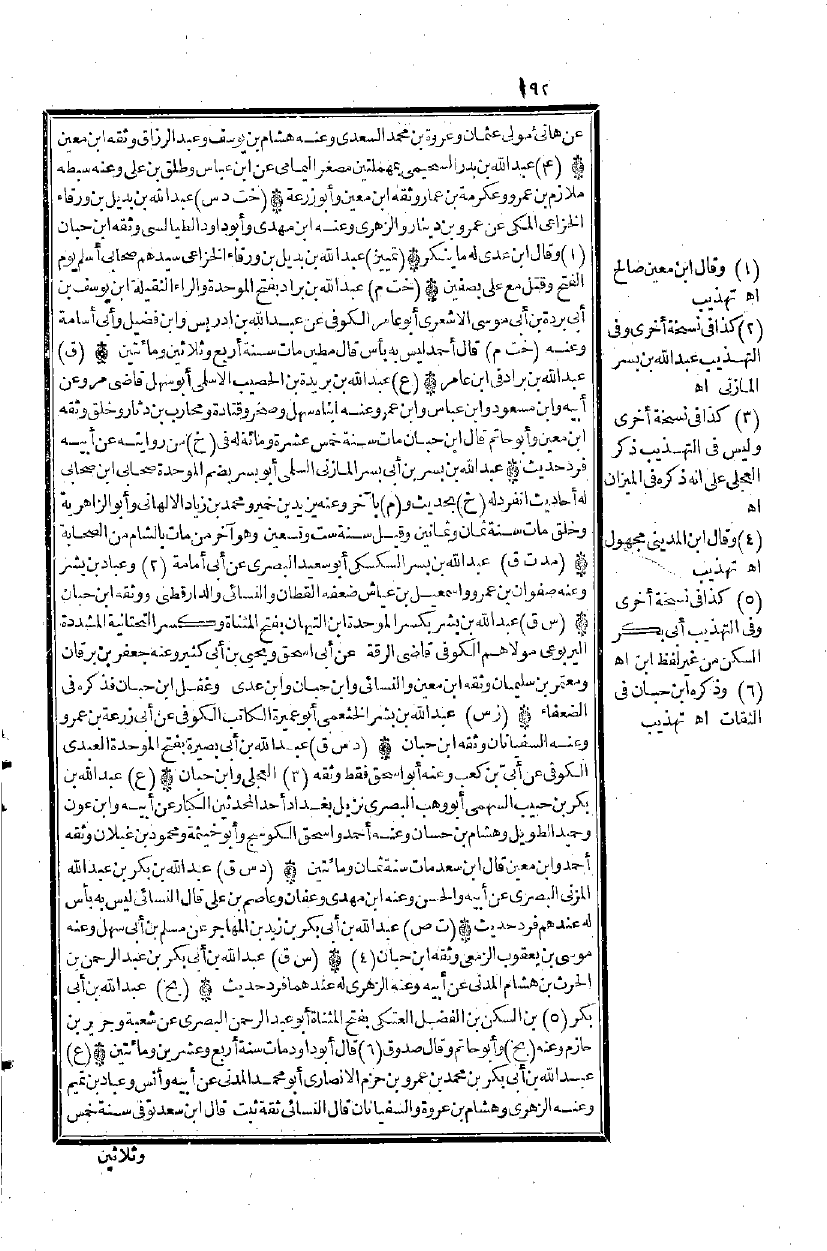 ١٩٢
عن هانئ مولى عثمان وعروة بن محمد السعدى وعنه هشام بن يوسف وعبد الرزاق وثقه ابن معين
۞ (٤) عبد الله بن بدر السحيمى بمهملتين مصغر اليمامى عن ابن عباس وطلق بن على وعنه سبطه
ملازم بن عمرو وعكرمة بن عمار وثقه ابن معين وأبو زرعة ۞ (خت د س) عبد الله بن بديل بن ورقاء
الخزاعى المكى عن عمرو بن دينار والزهرى وعنه ابن مهدى وأبو داود الطيالسى وثقه ابن حبان
(١) وقال ابن عدى له ما ينكر ۞ (تمييز) عبد الله بن بديل بن ورقاء الخزاعى سيدهم صحابى أسلم يوم
الفتح وقتل مع على بصفين ۞ (خت م) عبد الله بن براد بفتح الموحدة والراء الثقيلة ابن يوسف بن
أبى بردة بن أبى موسى الاشعرى أبو عامر الكوفى عن عبد الله بن ادريس وابن فضيل وأبى أسامة
وعنه (خت م) قال أحمد ليس به بأس قال مطين مات سنة أربع وثلاثين ومائتين ۞ (ق)
عبد الله بن براد فى ابن عامر ۞ (ع) عبد الله بن بريدة بن الحصيب الاسلمى أبو سهل قاضى مرو عن
أبيه وابن مسعود وابن عباس وابن عمر وعنه ابناه سهل وصخر وقتادة ومحارب بن دثار وخلق وثقه
ابن معين وأبو حاتم قال ابن حبان مات سنة خمس عشرة ومائة له فى (خ) من روايته عن أبيه
فرد حديث ۞ عبد الله بن بسر بن أبى بسر المازنى السلمى أبو بسر بضم الموحدة صحابى ابن صحابى
له أحاديث انفرد له (خ) بحديث و (م) بآخر وعنه يزيد بن خمير ومحمد بن زياد الالهانى وأبو الزاهرية
وخلق مات سنة ثمان وثمانين وقيل سنة ست وتسعين وهو آخر من مات بالشام من الصحابة
۞ (مد ت ق) عبد الله بن بسر السكسكى أبو سعيد البصرى عن أبى أمامة (٢) وعباد بن بشر
وعنه صفوان بن عمرو واسمعيل بن عياش ضعفه القطان والنسائى والدارقطنى ووثقه ابن حبان
۞ (س ق) عبد الله بن بشر بكسر الموحدة ابن التيهان بفتح المثناة وكسر التحتانية المشددة
اليربوعى مولاهم الكوفى قاضى الرقة عن أبى اسحق ويحيى بن أبى كثير وعنه جعفر بن برقان
ومعتمر بن سليمان وثقه ابن معين والنسائى وابن حبان وابن عدى وغفل ابن حبان فذكره فى
الضعفاء ۞ (ز س) عبد الله بن بشر الخثعمى أبو عميرة الكاتب الكوفى عن أبى زرعة بن عمرو
وعنه السفيانان وثقه ابن حبان ۞ (د س ق) عبد الله بن أبى بصيرة بفتح الموحدة العبدى
الكوفى عن أبىّ بن كعب وعنه أبو اسحق فقط وثقه (٣) العجلى وابن حبان ۞ (ع) عبد الله بن
بكر بن حبيب السهمى أبو وهب البصرى نزيل بغداد أحد المحدثين الكبار عن أبيه وابن عون
وحميد الطويل وهشام بن حسان وعنه أحمد واسحق الكوسج وأبو خيثمة ومحمود بن غيلان وثقه
أحمد وابن معين قال ابن سعد مات سنة ثمان ومائتين ۞ (د س ق) عبد الله بن بكر بن عبد الله
المزنى البصرى عن أبيه والحسن وعنه ابن مهدى وعفان وعاصم بن على قال النسائى ليس به بأس
له عندهم فرد حديث ۞ (ت ص) عبد الله بن أبى بكر بن زيد بن المهاجر عن مسلم بن أبى سهل وعنه
موسى بن يعقوب الزمعى وثقه ابن حبان (٤) ۞ (س ق) عبد الله بن أبى بكر بن عبد الرحمن بن
الحرث بن هشام المدنى عن أبيه وعنه الزهرى له عندهما فرد حديث ۞ (بخ) عبد الله بن أبى
بكر (٥) بن السكن بن الفضل العتكى بفتح المثناة أبو عبد الرحمن البصرى عن شعبة وجرير بن
حازم وعنه (بخ) وأبو حاتم وقال صدوق (٦) قال أبو داود مات سنة أربع وعشرين ومائتين ۞ (ع)
عبد الله بن أبى بكر بن محمد بن عمرو بن حزم الانصارى أبو محمد المدنى عن أبيه وأنس وعباد بن تميم
وعنه الزهرى وهشام بن عروة والسفيانان قال النسائى ثقة ثبت قال ابن سعد توفى سنة خمس
وثلاثين
(١) وقال ابن معين صالح
اه تهذيب
(٢) كذا فى نسخة أخرى وفى
التهذيب عبد الله بن بسر
المازنى اه
(٣) كذا فى نسخة أخرى
وليس فى التهذيب ذكر
العجلى على انه ذكره فى الميزان
اه
(٤) وقال ابن المدينى مجهول
اه تهذيب
(٥) كذا فى نسخة أخرى
وفى التهذيب أبى بكر
السكن من غير لفظ ابن اه
(٦) وذكره ابن حبان فى
الثقات اه تهذيب